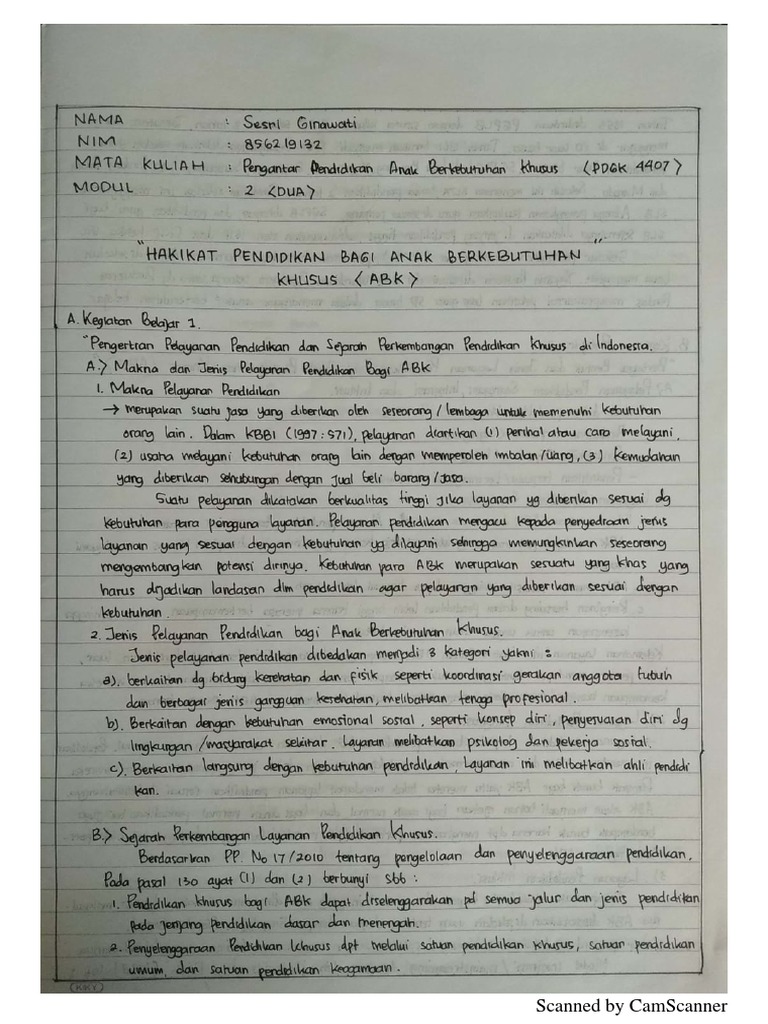 NAMA : Sesri Ginawati
NIM : 856219132
MATA KULIAH : Pengantar Pendidikan Anak Berkebutuhan Khusus <PDGK 4407>
MODUL : 2 <DUA>
"HAKIKAT PENDIDIKAN BAGI ANAK BERKEBUTUHAN
KHUSUS <ABK>"
A. Kegiatan Belajar 1.
"Pengertian Pelayanan Pendidikan dan Sejarah Perkembangan Pendidikan Khusus di Indonesia.
A.> Makna dan Jenis Pelayanan Pendidikan Bagi ABK
1. Makna Pelayanan Pendidikan
→ merupakan suatu jasa yang diberikan oleh seseorang/lembaga untuk memenuhi kebutuhan
orang lain. Dalam KBBI (1997:571), pelayanan diartikan (1) perihal atau cara melayani,
(2) usaha melayani kebutuhan orang lain dengan memperoleh imbalan/uang, (3) kemudahan
yang diberikan sehubungan dengan jual beli barang/jasa.
Suatu pelayanan dikatakan berkualitas tinggi jika layanan yg diberikan sesuai dg
kebutuhan para pengguna layanan. Pelayanan pendidikan mengacu kepada penyediaan jenis
layanan yang sesuai dengan kebutuhan yg dilayani sehingga memungkinkan seseorang
mengembangkan potensi dirinya. Kebutuhan para ABK merupakan sesuatu yang khas yang
harus dijadikan landasan dlm pendidikan agar pelayanan yang diberikan sesuai dengan
kebutuhan.
2. Jenis Pelayanan Pendidikan bagi Anak Berkebutuhan Khusus.
Jenis pelayanan pendidikan dibedakan menjadi 3 kategori yakni :
a). berkaitan dg bidang kesehatan dan fisik seperti koordinasi gerakan anggota tubuh
dan berbagai jenis gangguan kesehatan, melibatkan tenaga profesional.
b). Berkaitan dengan kebutuhan emosional sosial, seperti konsep diri, penyesuaian diri dg
lingkungan/masyarakat sekitar. Layanan melibatkan psikolog dan pekerja sosial.
c). Berkaitan langsung dengan kebutuhan pendidikan, Layanan ini melibatkan ahli pendidi
kan.
B.> Sejarah Perkembangan Layanan Pendidikan Khusus.
Berdasarkan PP. No 17/2010 tentang pengelolaan dan penyelenggaraan pendidikan.
Pada pasal 130 ayat (1) dan (2) berbunyi sbb :
1. Pendidikan khusus bagi ABK dapat diselenggarakan pd semua jalur dan jenis pendidikan
pada jenjang pendidikan dasar dan menengah.
2. Penyelenggaraan Pendidikan khusus dpt melalui satuan pendidikan khusus, satuan pendidikan
umum, dan satuan pendidikan keagamaan.
(KKY)
Scanned by CamScanner